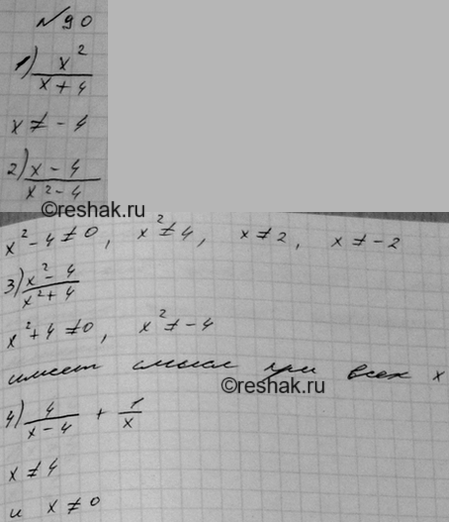 №90
1) x²/(x+4)
x ≠ -4
2) (x-4)/(x²-4)
©reshak.ru
x²-4≠0, x²≠4, x≠2, x≠-2
3) (x²-4)/(x²+4)
x²+4≠0, x²≠-4
имеет смысл при всех x
©reshak.ru
4) 4/(x-4) + 1/x
x≠4
и x≠0